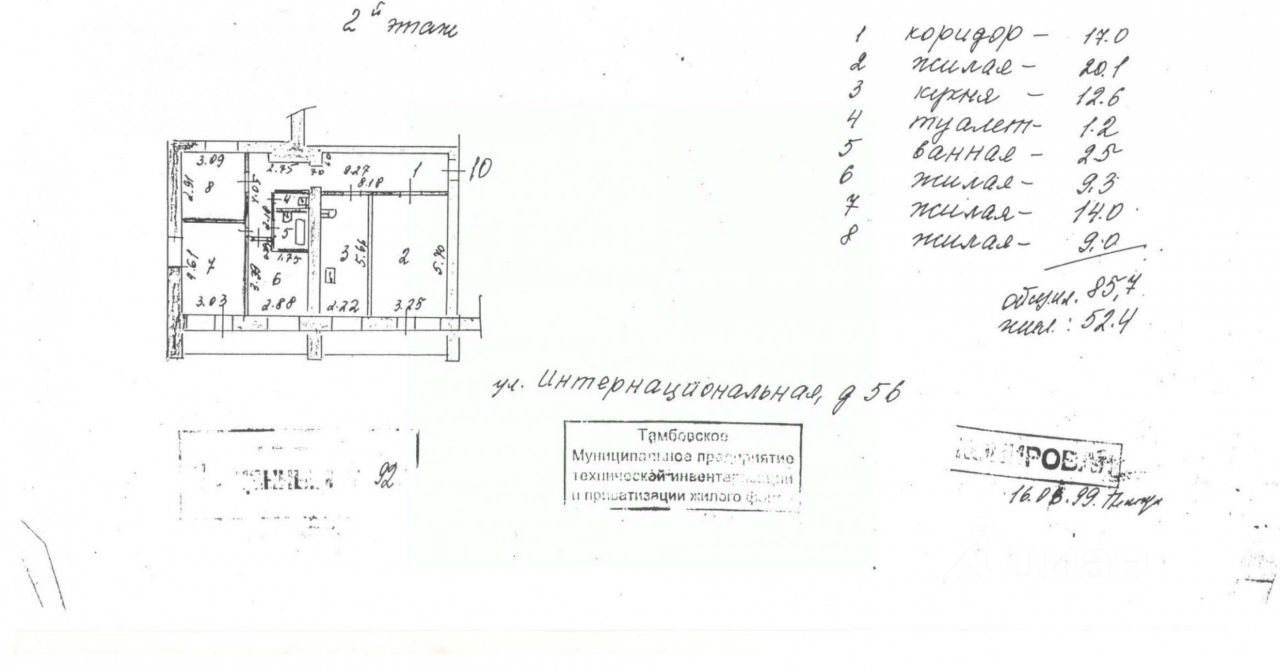 2й этаж
1 коридор - 17.0
2 жилая - 20.1
3 кухня - 12.6
4 туалет - 1.2
5 ванная - 2.5
6 жилая - 9.3
7 жилая - 14.0
8 жилая - 9.0
общ.пл. 85,7
жил.: 52.4
3.09
2.75
70
8.18
1
10
2.91
8
4.05
4
2.18
5
3
5.66
2
5.90
4.61
7
1.75
3.39
6
3.03
2.88
2.22
3.25
ул. Интернациональная, д 56
92
Тамбовское
Муниципальное предприятие
технической инвентаризации
и приватизации жилого фонда
16.03.99.